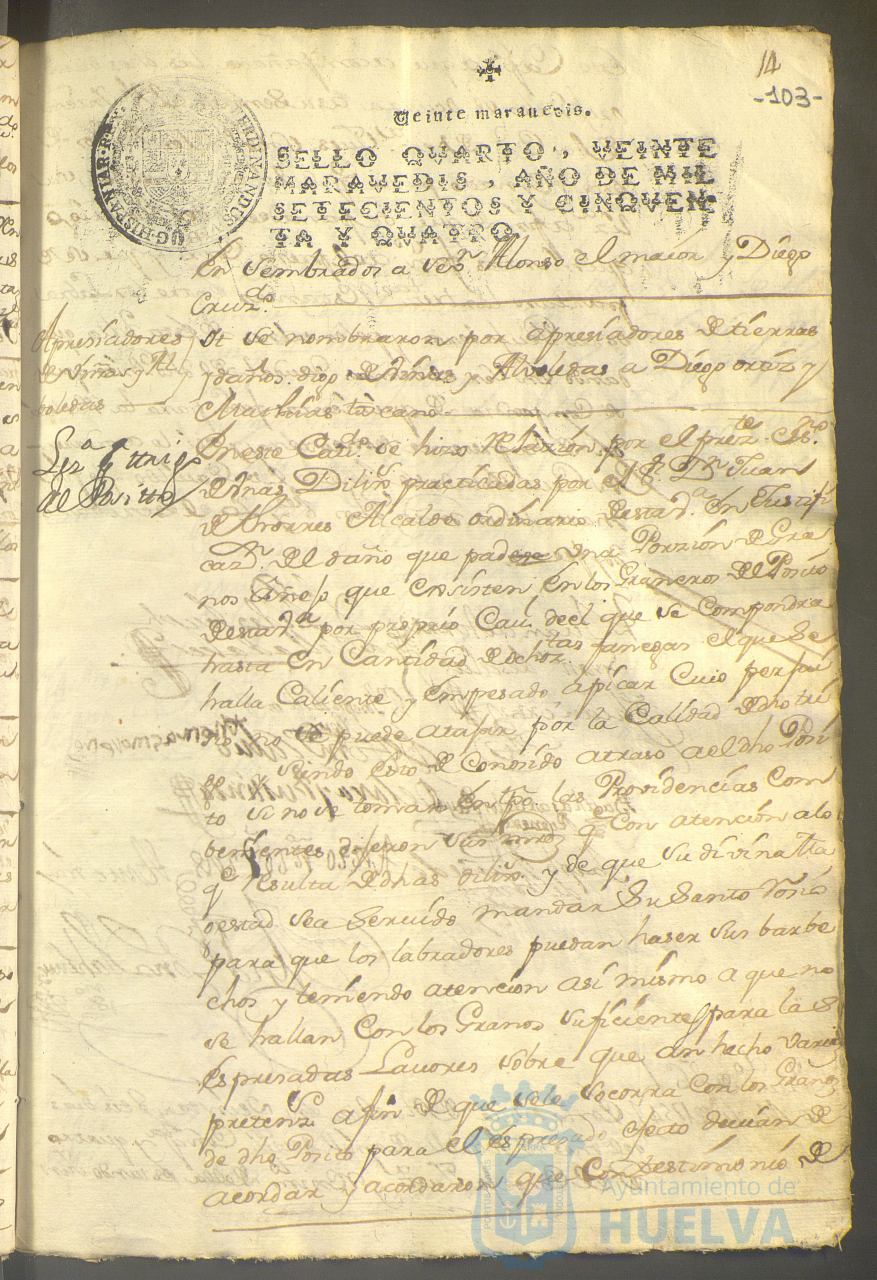 14
-103-
Veinte marauedis.
SELLO QVARTO, VEINTE
MARAVEDIS, AÑO DE MIL
SETECIENTOS Y CINQVEN-
TA Y QVATRO.
HISPANIAR. REX
FERDINANDUS
en sembrados a ver Alonso el maior y Diego
Cruz
Apresiadores
de Viñas y Al
boledas
It se nombraron por apresiadores de tierras
y daños digo de Viñas y Alboledas a Diego ortiz y
Mathias
Sra
del Posito
En este Cavdo. se hizo Relazión por el preste. Esno.
de unas Dilixs. practicadas por el Sr. Dn Juan
de thorres Alcalde ordinario de esta Va. en Justifi
cazn. del daño que padeze una Porzión de Gra
nos añejo que Existen en los Graneros del Posito
de esta Va por proprio Cau. del que se compondra
hasta en Cantidad de ochoztas fanegas el que se
halla Caliente y empesado apicar Cuio perjui
no se puede atajar por la Calidad de dho tri
siendo esto de Conosido atraso a el dho Posi
to si no se toman las Providencias Com
benientes dijeron sus mrds qe Con atención alo
qe Resulta de dhas dilixs. y de que su divina Ma
gestad sea Servido mandar Su Santo
para que los labradores puedan haser sus barbe
chos y teniendo atencion asi mismo a que no
se hallan Con los Granos suficientes para las
Espresadas Lavores sobre que an hecho varias
pretenz. afin de que se le socorra con los Granos
de dho Posito para el espresado efecto devian de
acordar y acordaron que Con testimonio de
Ayuntamiento de
HUELVA